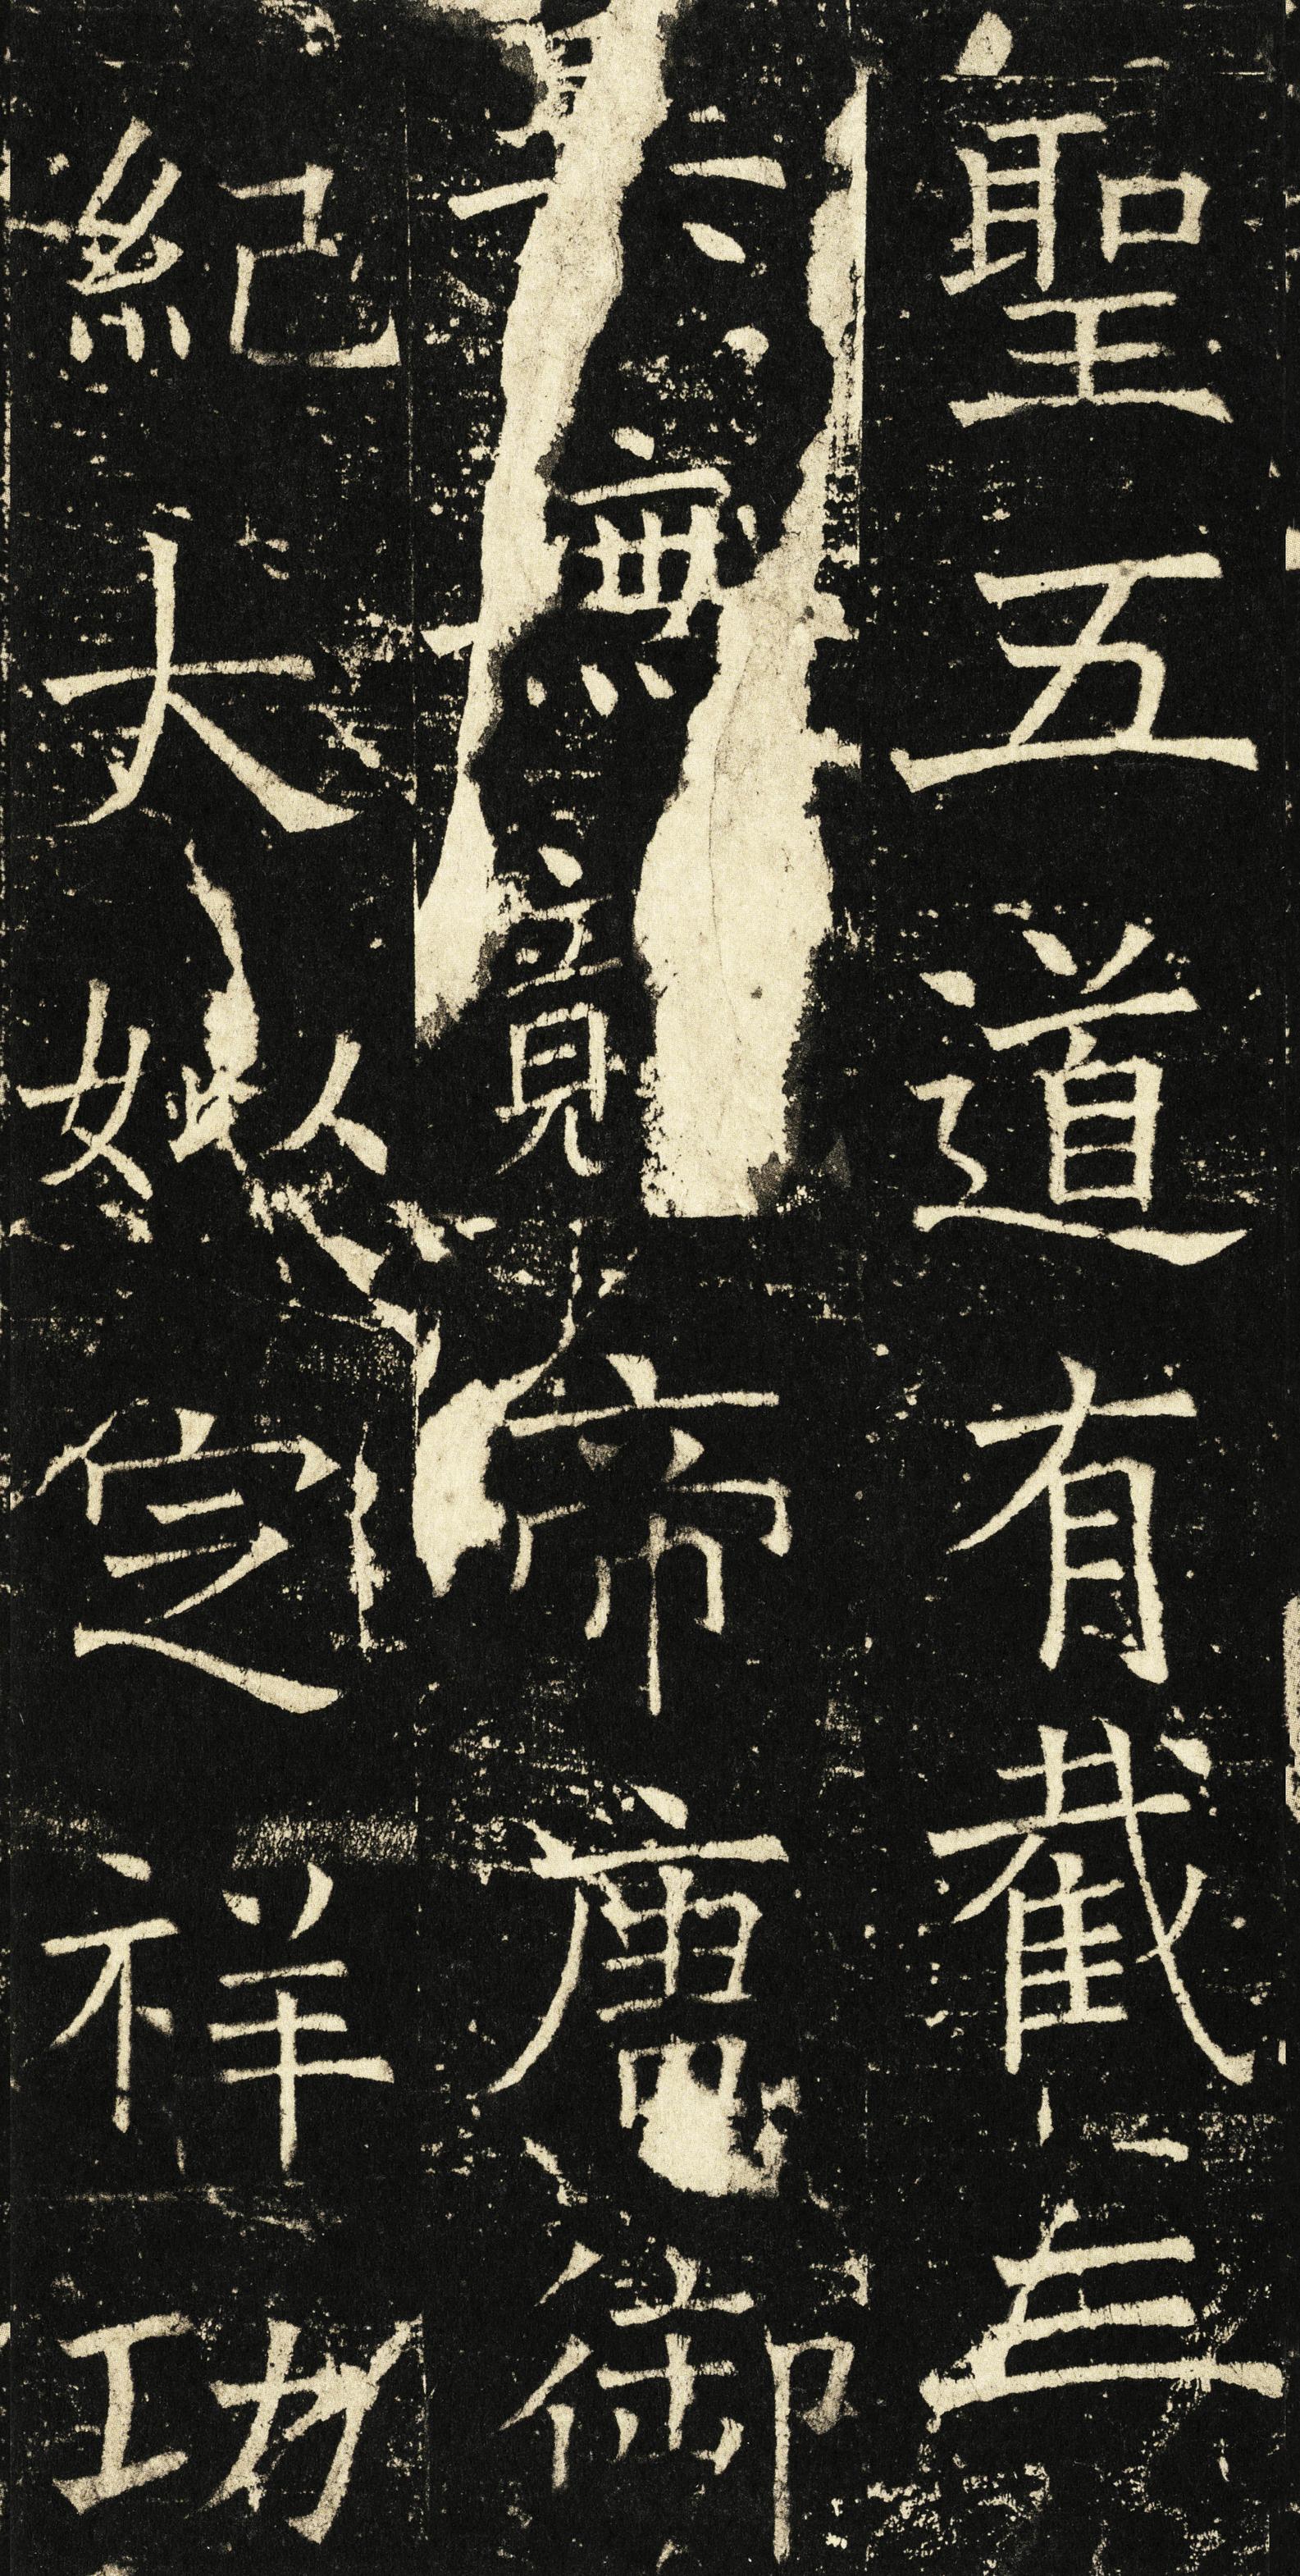 聖五道有截
無竟帝唐御
紀大姒定祥功